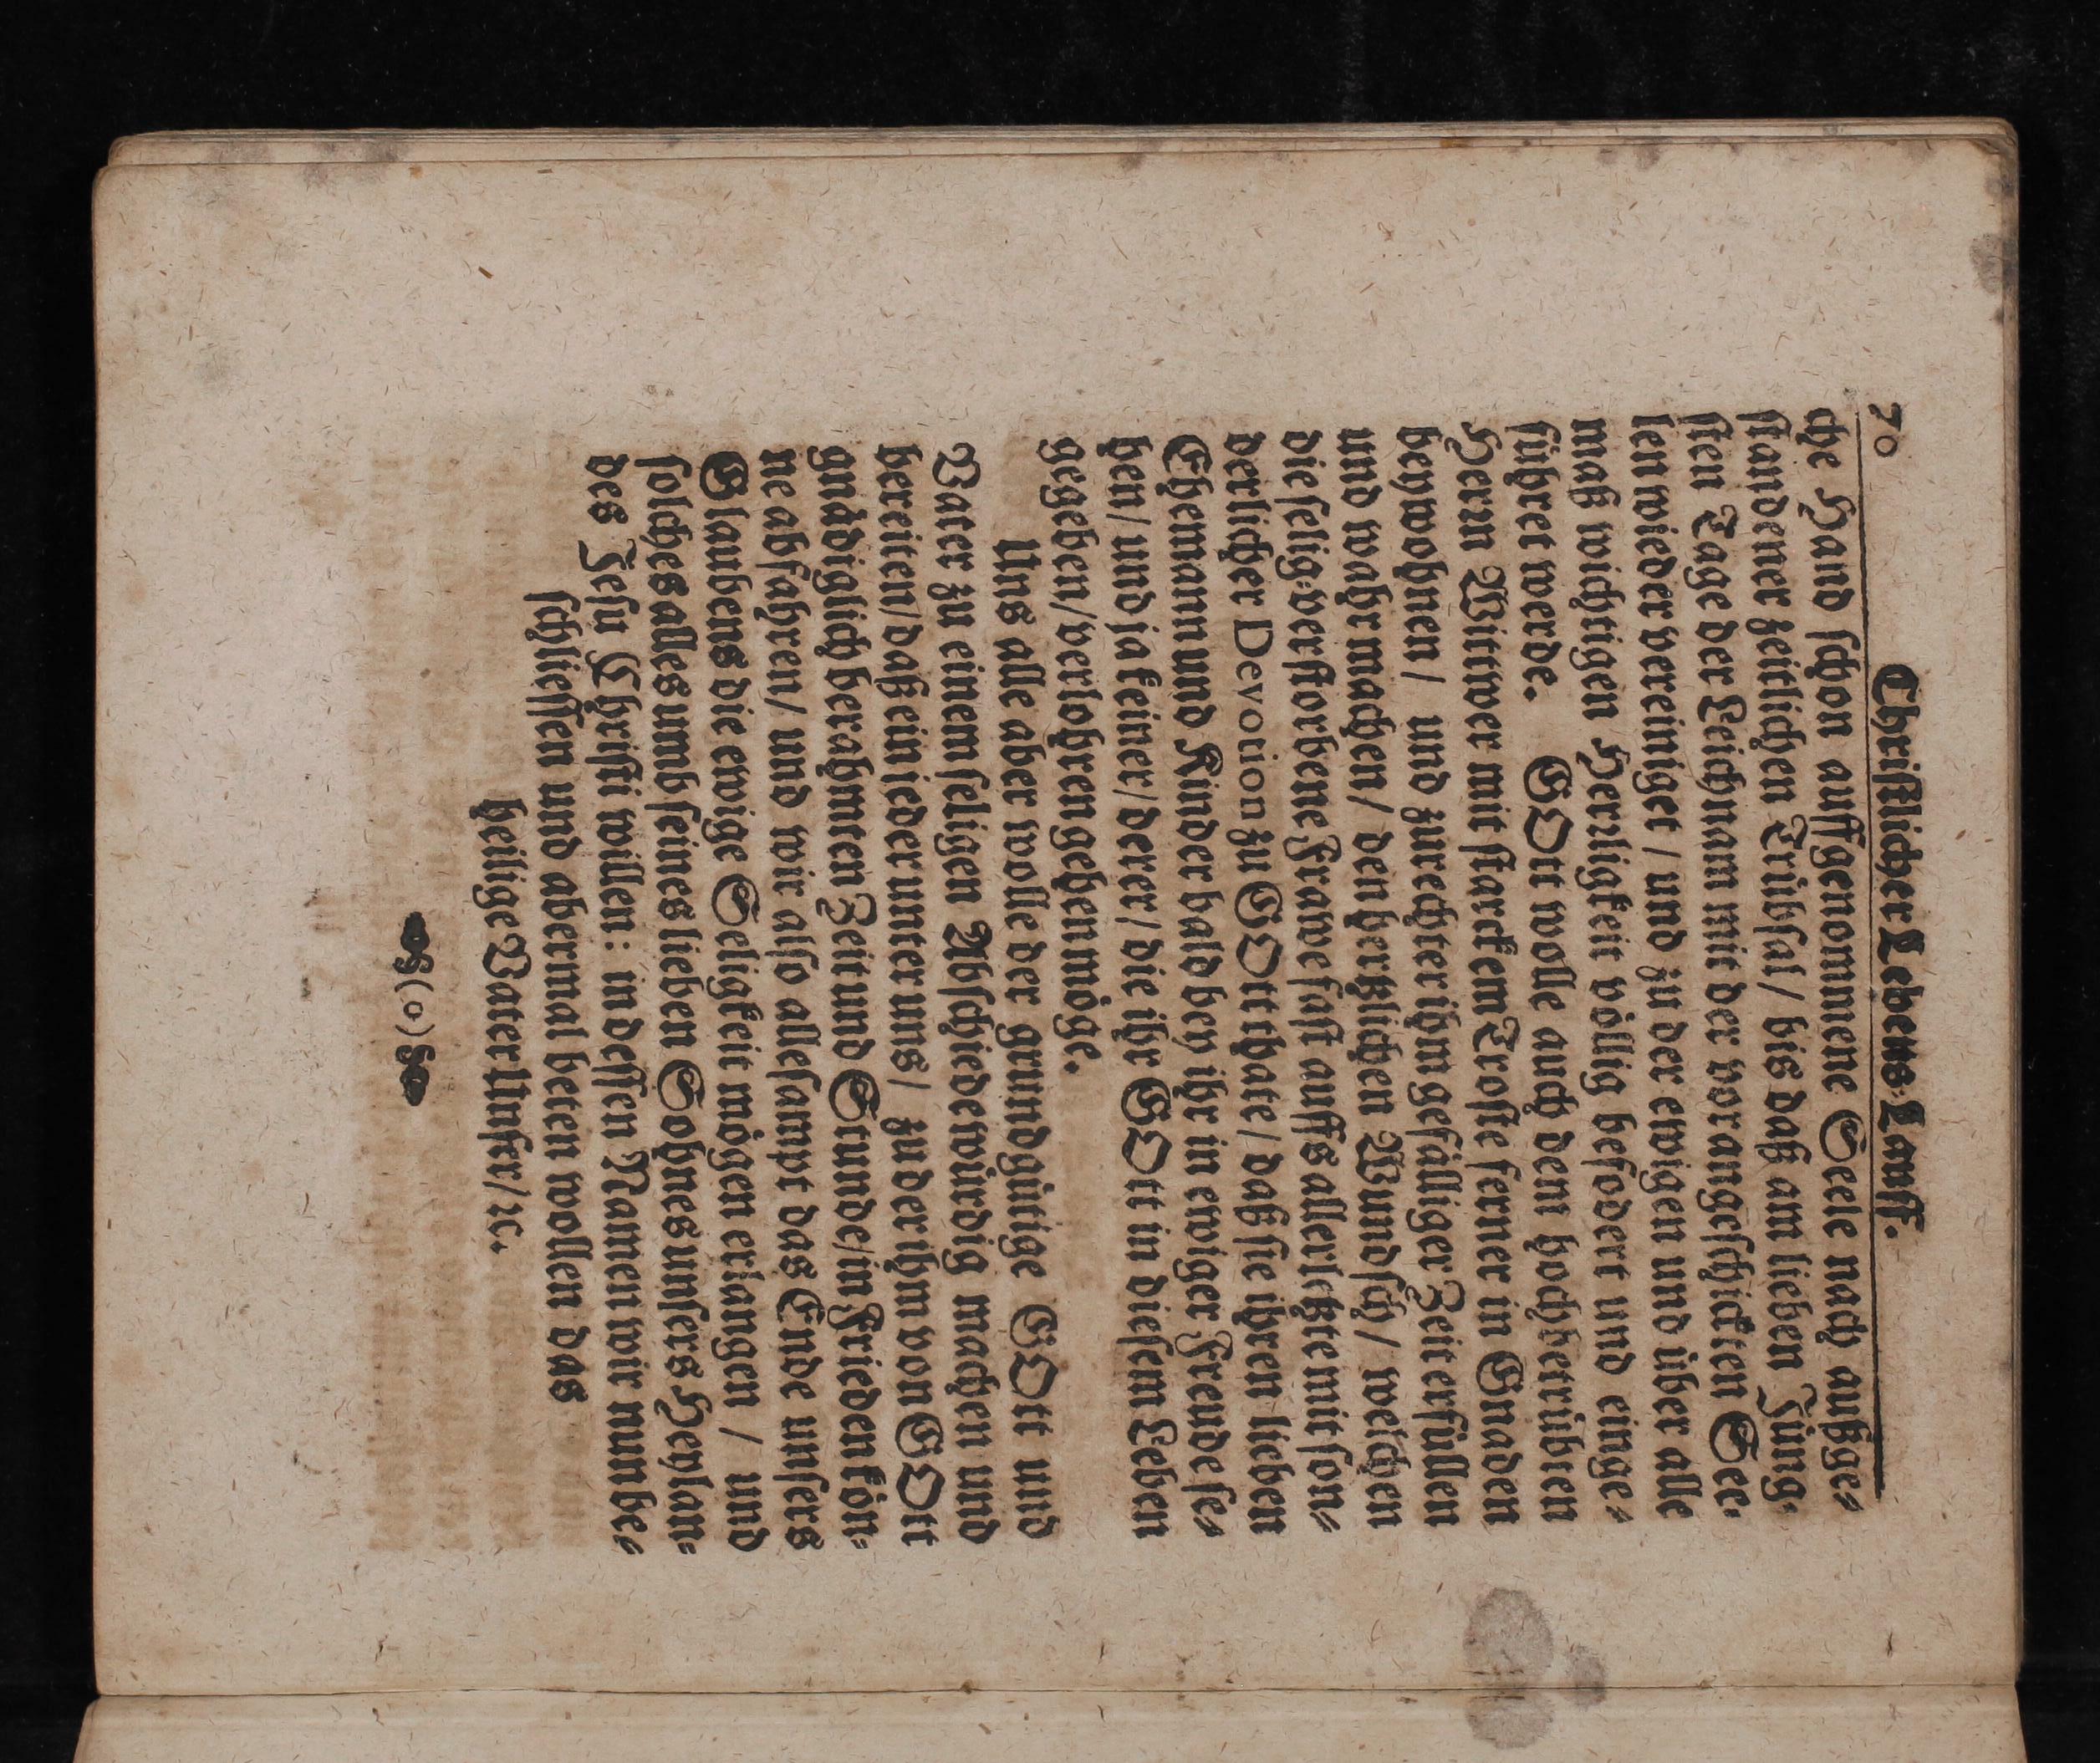 70 Christlicher Lebens-Lauff.
che Hand schon auffgenommene Seele nach außge-
standener zeitlichen Trübsal / bis daß am lieben Jüng-
sten Tage der Leichnam mit der vorangeschickten See-
len wieder vereiniget / und zu der ewigen und über alle
maß wichtigen Herrligkeit völlig befodert und einge-
führet werde. GOtt wolle auch dem hochbetrübten
Herrn Wittwer mit starckem Troste ferner in Gnaden
beywohnen / und zurechter ihm gefälliger Zeit erfüllen
und wahr machen / den hertzlichen Wundsch / welchen
die selig-verstorbene Frawe fast auffs allerletzte mit son-
derlicher Devotion zu GOtt thate / daß sie ihren lieben
Ehemann und Kinder bald bey ihr in ewiger Freude se-
hen / und ja keiner / derer / die ihr GOtt in diesem Leben
gegeben / verlohren gehen möge.
Uns alle aber wolle der grundgütige GOtt und
Vater zu einem seligen Abschiede würdig machen und
bereiten / daß ein jeder unter uns / zu der ihm von GOtt
gnädiglich berahmten Zeit und Stunde / im Frieden kön-
ne abfahren / und wir also allesampt das Ende unsers
Glaubens die ewige Seligkeit mögen erlangen / und
solches alles umb seines lieben Sohnes unsers Heylan-
des Jesu Christi willen: in dessen Namen wir nun be-
schliessen und abermal beten wollen das
heilige Vater Unser / ꝛc.
(o)